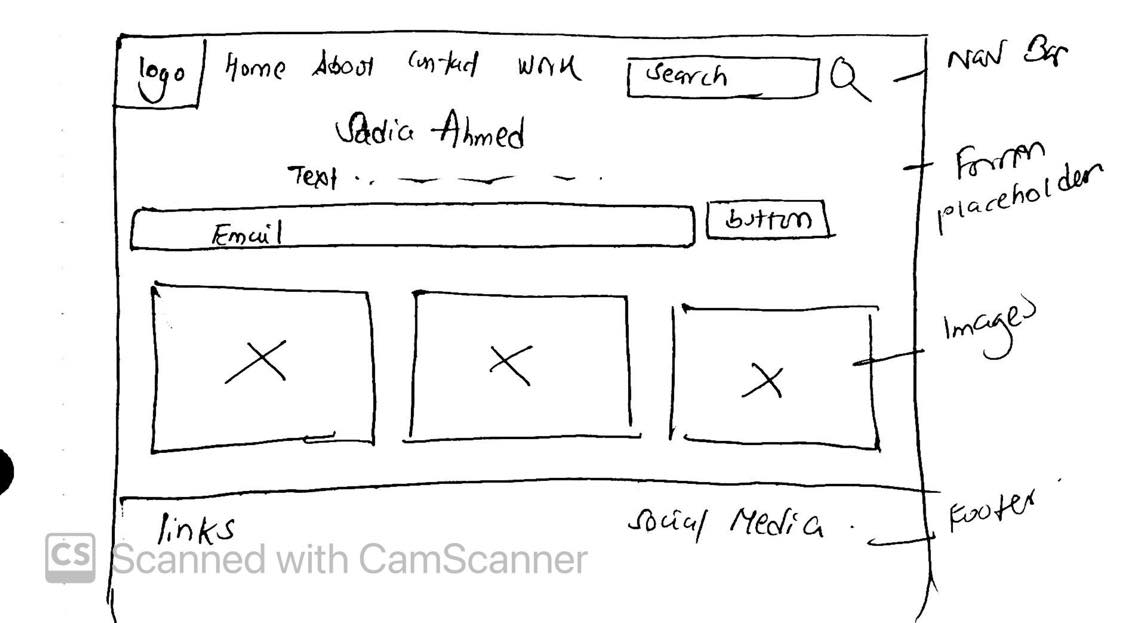 logo Home About Contact Work Search
Nav Bar
Sadia Ahmed
Text
Form
placeholder
Email button
Images
links Social Media
Footer
CS Scanned with CamScanner